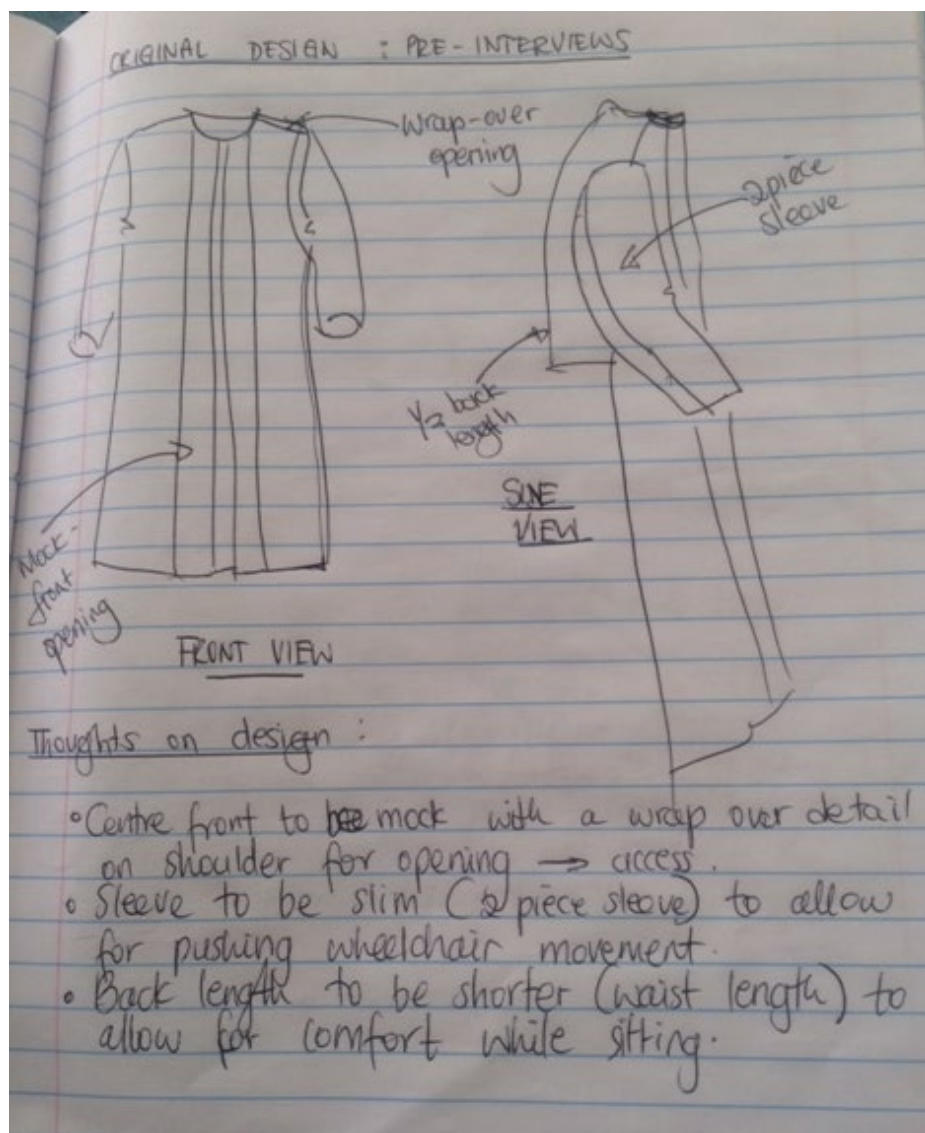 ORIGINAL DESIGN : PRE-INTERVIEWS
Wrap-over
opening
2 piece
sleeve
1/2 back
length
SIDE
VIEW
Mock-
front
opening
FRONT VIEW
Thoughts on design :
• Centre front to be mock with a wrap over detail
on shoulder for opening → access.
• Sleeve to be slim (2 piece sleeve) to allow
for pushing wheelchair movement.
• Back length to be shorter (waist length) to
allow for comfort while sitting.